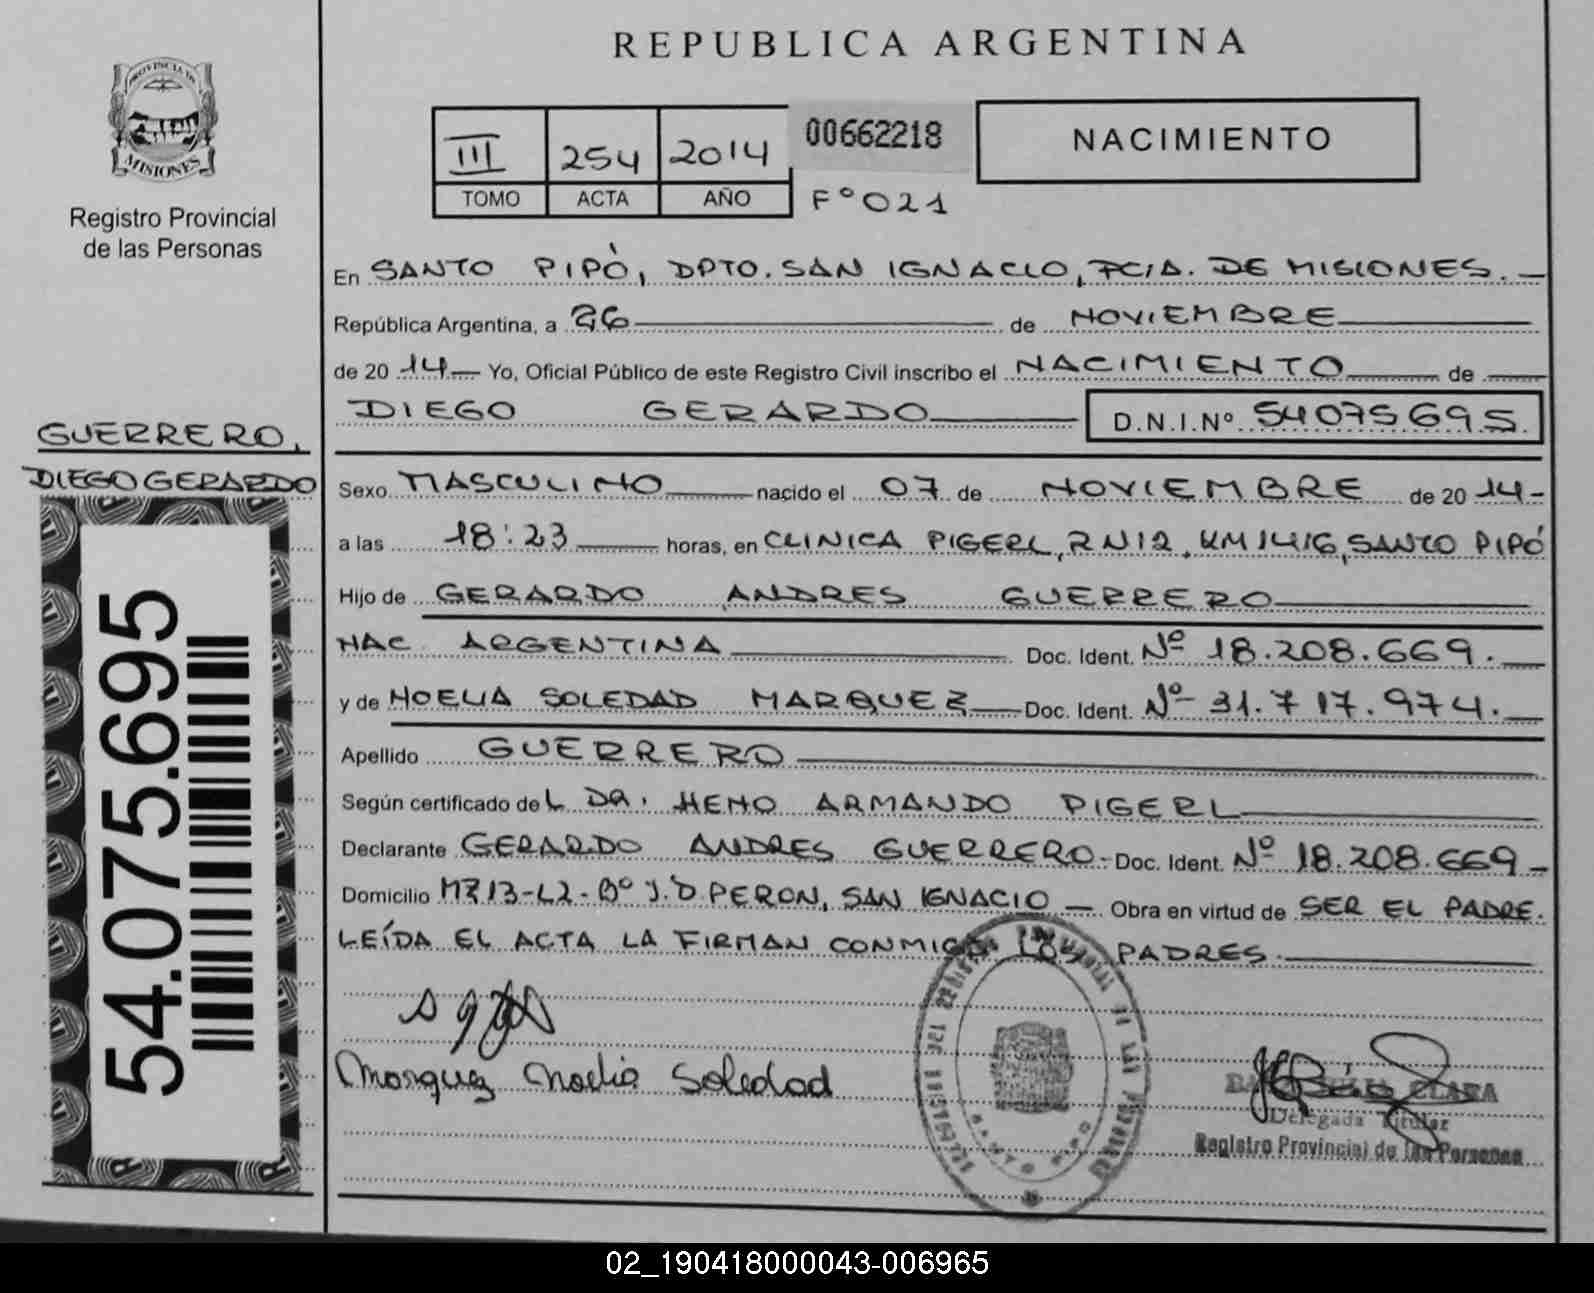 REPUBLICA ARGENTINA
PROVINCIA DE
MISIONES
Registro Provincial
de las Personas
III 254 2014 00662218 NACIMIENTO
TOMO ACTA AÑO Fº 021
En SANTO PIPÒ, DPTO. SAN IGNACIO, PCIA. DE MISIONES.
República Argentina, a 26 de NOVIEMBRE
de 20 14 Yo, Oficial Público de este Registro Civil inscribo el NACIMIENTO de
DIEGO GERARDO D.N.I.Nº 54075695
GUERRERO,
DIEGO GERARDO
Sexo MASCULINO nacido el 07 de NOVIEMBRE de 20 14
a las 18:23 horas, en CLINICA PIGERL, RN12, KM1416, SANTO PIPÓ
Hijo de GERARDO ANDRES GUERRERO
NAC. ARGENTINA Doc. Ident. Nº 18.208.669.
y de NOELIA SOLEDAD MARQUEZ Doc. Ident. Nº 31.717.974.
Apellido GUERRERO
Según certificado del DR. HENO ARMANDO PIGERL
Declarante GERARDO ANDRES GUERRERO Doc. Ident. Nº 18.208.669
Domicilio MZ13-L2-Bº J.D. PERON, SAN IGNACIO Obra en virtud de SER EL PADRE.
LEÍDA EL ACTA LA FIRMAN CONMIGO LOS PADRES.
54.075.695
Marquez Noelia Soledad
SANTO PIPO
CLARA
Delegada Titular
Registro Provincial de las Personas
02_190418000043-006965